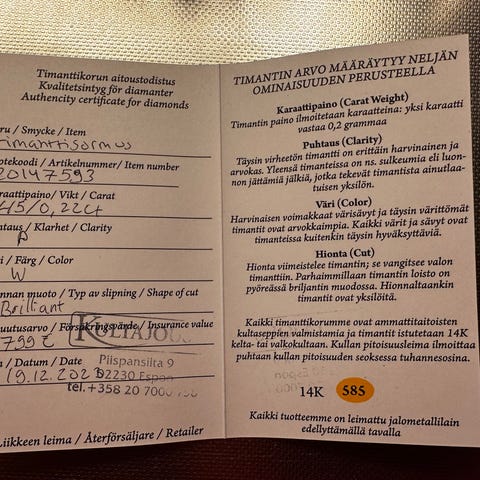 Timanttikorun aitoustodistus
Kvalitetsintyg för diamanter
Authencity certificate for diamonds
ru / Smycke / Item
timanttisormus
otekoodi / Artikelnummer / Item number
20147593
raattipaino / Vikt / Carat
45/0,22ct
htaus / Klarhet / Clarity
P
i / Färg / Color
W
nnan muoto / Typ av slipning / Shape of cut
Brilliant
uutusarvo / Försäkringsvärde / Insurance value
799 €
KULTAJOU
Piispansilta 9
n / Datum / Date
19.12.202
02230 Espoo
tel. +358 20 7000
Liikkeen leima / Återförsäljare / Retailer
TIMANTIN ARVO MÄÄRÄYTYY NELJÄN
OMINAISUUDEN PERUSTEELLA
Karaattipaino (Carat Weight)
Timantin paino ilmoitetaan karaatteina: yksi karaatti
vastaa 0,2 grammaa
Puhtaus (Clarity)
Täysin virheetön timantti on erittäin harvinainen ja
arvokas. Yleensä timanteissa on ns. sulkeumia eli luon-
non jättämiä jälkiä, jotka tekevät timantista ainutlaa-
tuisen yksilön.
Väri (Color)
Harvinaisen voimakkaat värisävyt ja täysin värittömät
timantit ovat arvokkaimpia. Kaikki värit ja sävyt ovat
timanteissa kuitenkin täysin hyväksyttäviä.
Hionta (Cut)
Hionta viimeistelee timantin; se vangitsee valon
timanttiin. Parhaimmillaan timantin loisto on
pyöreässä briljantin muodossa. Hionnaltaankin
timantit ovat yksilöitä.
Kaikki timanttikorumme ovat ammattitaitoisten
kultaseppien valmistamia ja timantit istutetaan 14K
kelta- tai valkokultaan. Kullan pitoisuusleima ilmoittaa
puhtaan kullan pitoisuuden seoksessa tuhannesosina.
14K 585
Kaikki tuotteemme on leimattu jalometallilain
edellyttämällä tavalla